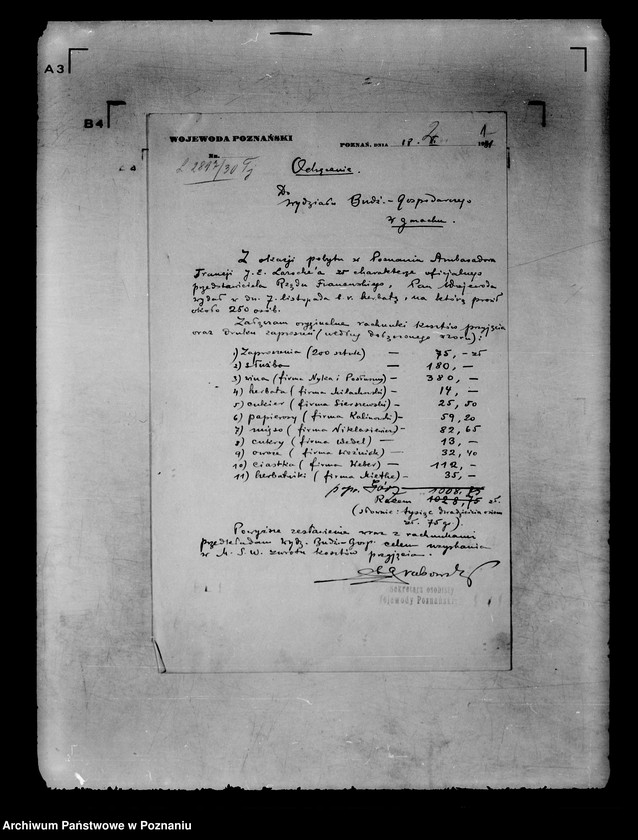 A3
B4
WOJEWODA POZNAŃSKI
POZNAŃ, DNIA 18. 2. 1
Nr.
L 2817/30 Tj
Odręcznie.
Do
Wydziału Budż.-Gospodarczego
w gmachu.
Z okazji pobytu w Poznaniu Ambasadora
Francji J. E. Laroche'a w charakterze oficjalnego
przedstawiciela Rządu Francuskiego, Pan Wojewoda
wydał w dn. 7. listopada b. r. herbatę, na którą prosił
około 250 osób.
Załączam oryginalne rachunki kosztów przyjęcia
oraz druku zaproszeń (według dołączonego wzoru):
1) Zaproszenia (200 sztuk) — 75,- zł
2) służba — 180,-
3) wina (firma Nyka i Posłuszny) — 380,-
4) herbata (firma Miłachowski) — 14,-
5) cukier (firma Sierszewski) — 25,50
6) papierosy (firma Kalinowski) — 59,20
7) mięso (firma Niklasiewicz) — 82,65
8) cukry (firma Wedel) — 13,-
9) owoce (firma Woźniak) — 32,40
10) ciastka (firma Weber) — 112,-
11) herbatniki (firma Mietke) — 35,-
1008.75
Razem 1028,75 zł.
(słownie: tysiąc dwadzieścia osiem
zł. 75 g).
Powyższe zestawienie wraz z rachunkami
przedkładam Wydz. Budż.-Gosp. celem uzyskania
w M. S. W. zwrotu kosztów przyjęcia.
Grabowski
Sekretarz osobisty
Wojewody Poznańskiego
Archiwum Państwowe w Poznaniu